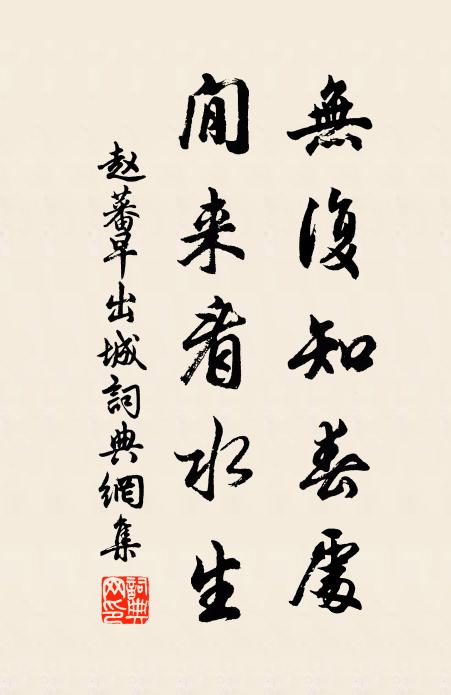 無復知春處
閒来看水生
赵蕃早出城詞典網集
詞典网印